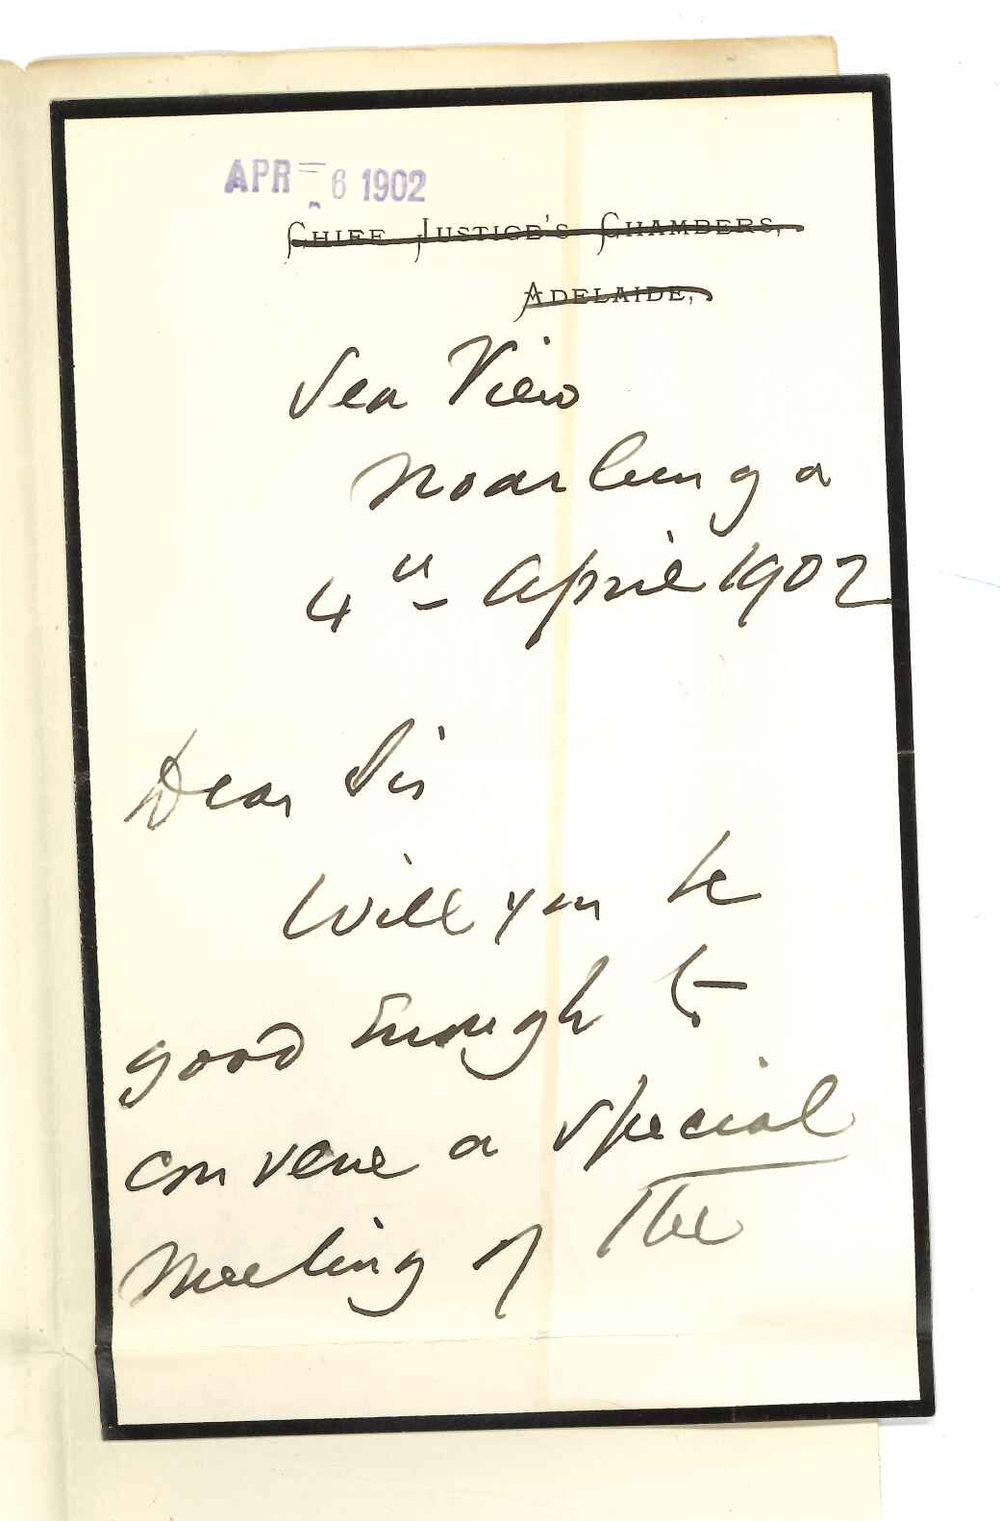 APR 6 1902
CHIEF JUSTICE'S CHAMBERS,
ADELAIDE,
Sea View
Noarlunga
4th April 1902
Dear Sir
Will you be
good enough to
convene a special
meeting of the